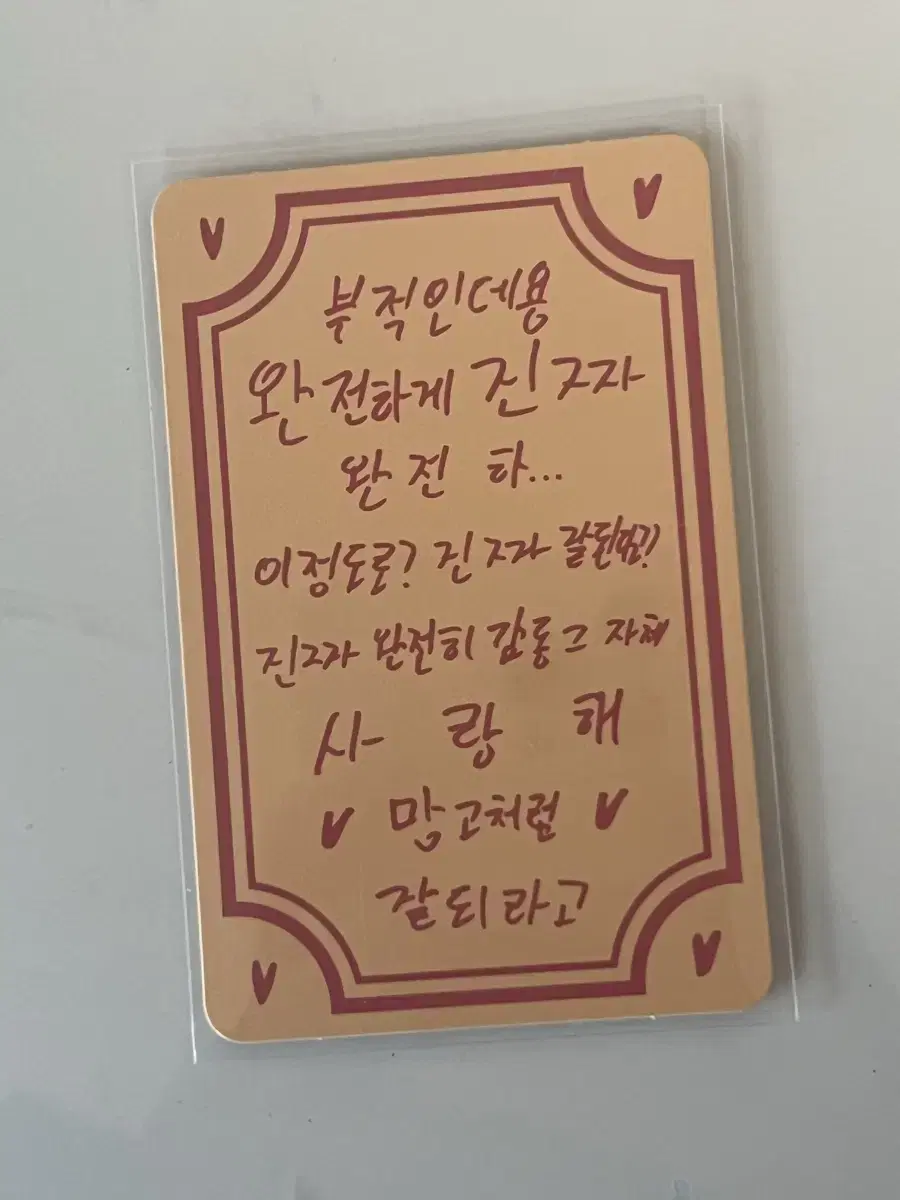 부적인데용
완전하게 진ㅈ자
완전 하...
이정도로? 진ㅈ자 잘된다?!
진ㅈ자 완전히 감동 그 자체
사 랑 해
♥ 망고처럼 ♥
잘되라고